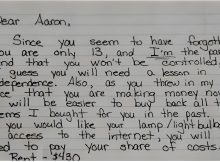 Dear Aaron,
Since you seem to have forgott
you are only 13, and I'm the pa
nd that you won't be controlled.
guess you will need a lesson in
dependence. Also, as you threw in m
ce that you are making money now
will be easier to buy back all t
ems I bought for you in the past.
you would like your lamp/light bulb
access to the internet, you will
ed to pay your share of costs.
Rent - $430